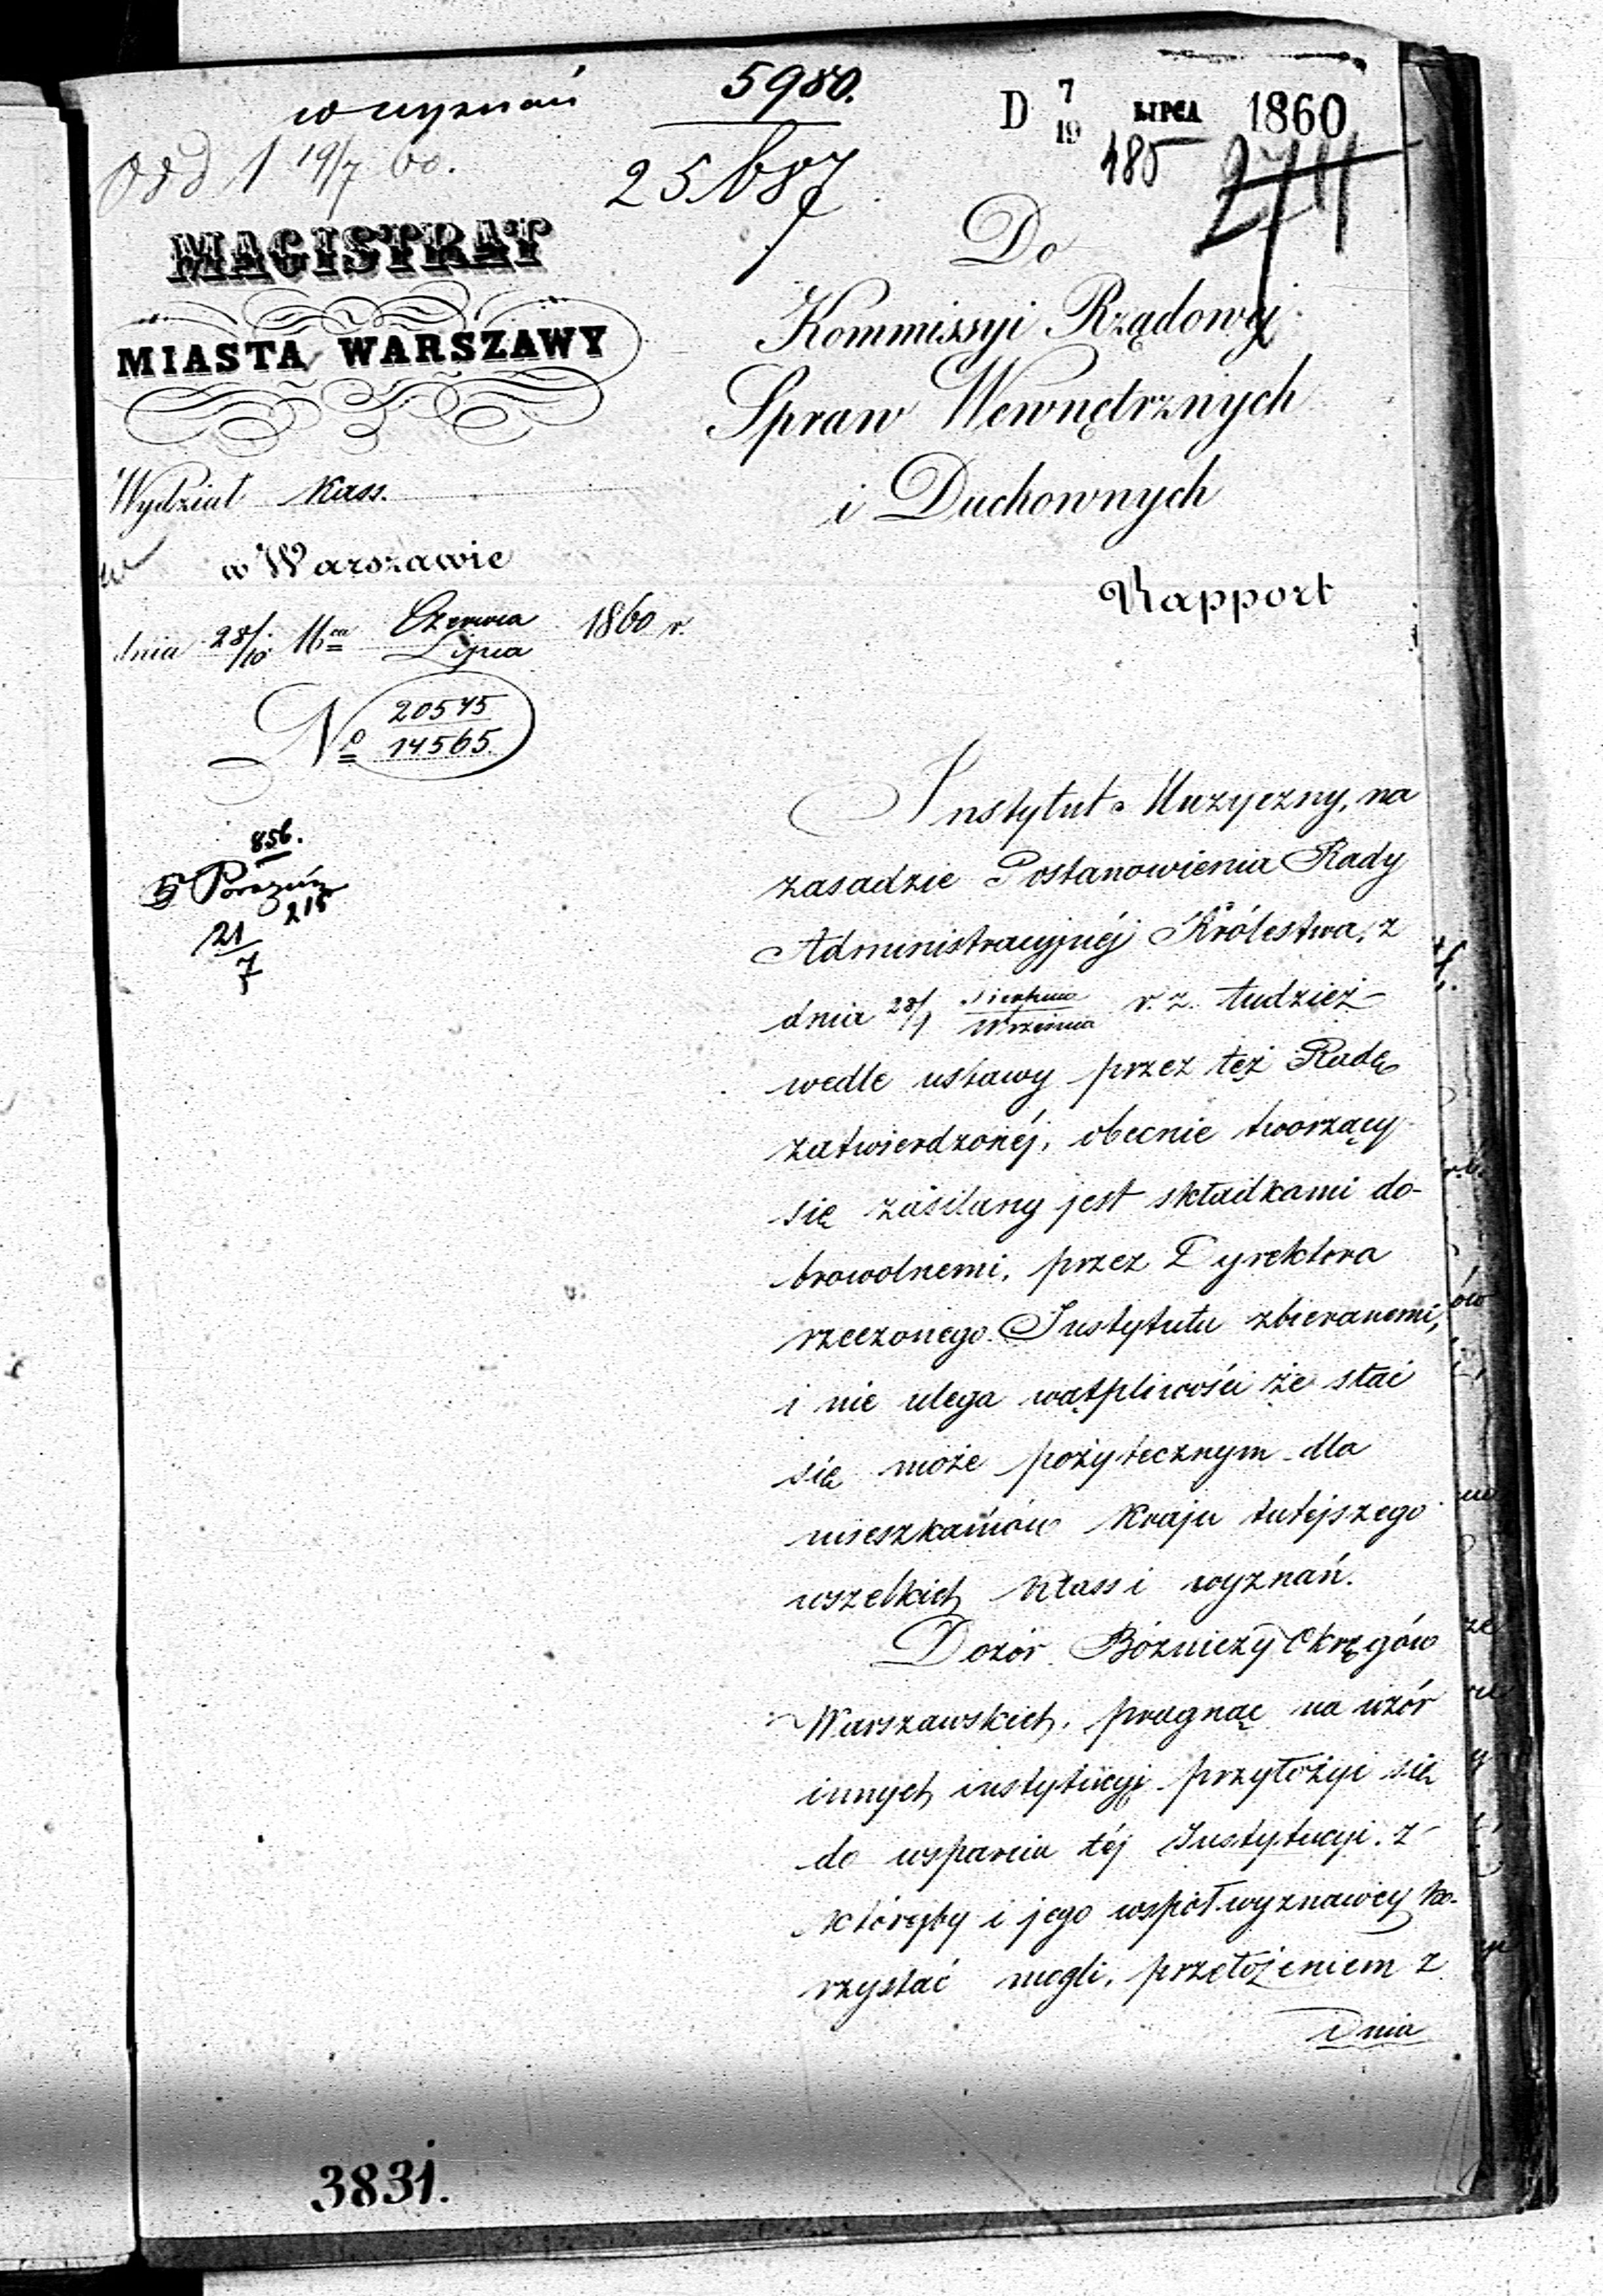 w wyznań
5980.
D 7/19 LIPCA 1860
185
2711
Odd 1 19/7 60.
25687
MAGISTRAT
MIASTA WARSZAWY
Wydział Kass.
w Warszawie
dnia 28/10 Czerwca/Lipca 1860 r.
No 20575/14565.
856.
215
21/7
Do
Kommissyi Rządowej
Spraw Wewnętrznych
i Duchownych
Rapport
Instytut Muzyczny, na
zasadzie Postanowienia Rady
Administracyjnéj Królestwa, z
dnia 28/9 Sierpnia/Września r. z. tudzież
wedle ustawy przez też Radę
zatwierdzonéj, obecnie tworzący
się zasilany jest składkami do-
browolnemi, przez Dyrektora
rzeczonego Instytutu zbieranemi,
i nie ulega wątpliwości że stać
się może pożytecznym dla
mieszkańców Kraju tutejszego
wszelkich klass i wyznań.
Dozór Bóżniczy Okręgów
Warszawskich, pragnąc na wzór
innych instytucyj przyłożyć się
do wsparcia téj Instytucyi, z
któréjby i jego współwyznawcy ko-
rzystać mogli, przełożeniem z
Dnia
3831.